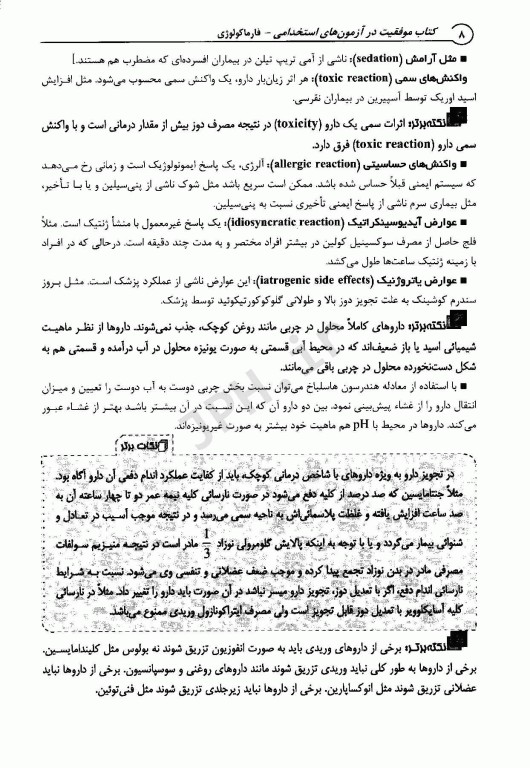 ۸ کتاب موفقیت در آزمون‌های استخدامی - فارماکولوژی
■ مثل آرامش (sedation): ناشی از آمی تریپ تیلن در بیماران افسرده‌ای که مضطرب هم هستند.]
واکنش‌های سمی (toxic reaction): هر اثر زیان‌بار دارو، یک واکنش سمی محسوب می‌شود. مثل افزایش
اسید اوریک توسط آسپیرین در بیماران نقرسی.
نکته‌برتر: اثرات سمی یک دارو (toxicity) در نتیجه مصرف دوز بیش از مقدار درمانی است و با واکنش
سمی دارو (toxic reaction) فرق دارد.
■ واکنش‌های حساسیتی (allergic reaction): آلرژی، یک پاسخ ایمونولوژیک است و زمانی رخ می‌دهد
که سیستم ایمنی قبلاً حساس شده باشد. ممکن است سریع باشد مثل شوک ناشی از پنی‌سیلین و یا با تأخیر،
مثل بیماری سرم ناشی از پاسخ ایمنی تأخیری نسبت به پنی‌سیلین.
■ عوارض آیدیوسینکراتیک (idiosyncratic reaction): یک پاسخ غیرمعمول با منشأ ژنتیک است. مثلاً
فلج حاصل از مصرف سوکسینیل کولین در بیشتر افراد مختصر و به مدت چند دقیقه است. درحالی که در افراد
با زمینه ژنتیک ساعت‌ها طول می‌کشد.
■ عوارض یاتروژنیک (iatrogenic side effects): این عوارض ناشی از عملکرد پزشک است. مثل بروز
سندرم کوشینگ به علت تجویز دوز بالا و طولانی گلوکوکورتیکوئید توسط پزشک.
نکته‌برتر: داروهای کاملاً محلول در چربی مانند روغن کوچک، جذب نمی‌شوند. داروها از نظر ماهیت
شیمیائی اسید یا باز ضعیف‌اند که در محیط آبی قسمتی به صورت یونیزه محلول در آب درآمده و قسمتی هم به
شکل دست‌نخورده محلول در چربی باقی می‌مانند.
■ با استفاده از معادله هندرسون هاسلباخ می‌توان نسبت بخش چربی دوست به آب دوست را تعیین و میزان
انتقال دارو را از غشاء پیش‌بینی نمود. بین دو دارو آن که این نسبت در آن بیشتر باشد بهتر از غشاء عبور
می‌کند. داروها در محیط با pH هم ماهیت خود بیشتر به صورت غیریونیزه‌اند.
نکات برتر
در تجویز دارو به ویژه داروهای با شاخص درمانی کوچک، باید از کفایت عملکرد اندام دفعی آن دارو آگاه بود.
مثلاً جنتامایسین که صد درصد از کلیه دفع می‌شود در صورت نارسائی کلیه نیمه عمر دو تا چهار ساعته آن به
صد ساعت افزایش یافته و غلظت پلاسمائی‌اش به ناحیه سمی می‌رسد و در نتیجه موجب آسیب در تعادل و
شنوائی بیمار می‌گردد و یا با توجه به اینکه پالایش گلومرولی نوزاد 1/3 مادر است در نتیجه منیزیم سولفات
مصرفی مادر در بدن نوزاد تجمع پیدا کرده و موجب ضعف عضلانی و تنفسی وی می‌شود. نسبت به شرایط
نارسائی اندام دفع، اگر با تعدیل دوز، تجویز دارو میسر نباشد در آن صورت باید دارو را تغییر داد. مثلاً در نارسائی
کلیه آسایکلوویر با تعدیل دوز قابل تجویز است ولی مصرف ایتراکونازول وریدی ممنوع می‌باشد.
نکته‌برتر: برخی از داروهای وریدی باید به صورت انفوزیون تزریق شوند نه بولوس مثل کلیندامایسین.
برخی از داروها به طور کلی نباید وریدی تزریق شوند مانند داروهای روغنی و سوسپانسیون. برخی از داروها نباید
عضلانی تزریق شوند مثل انوکساپارین. برخی از داروها نباید زیرجلدی تزریق شوند مثل فنی‌توئین.